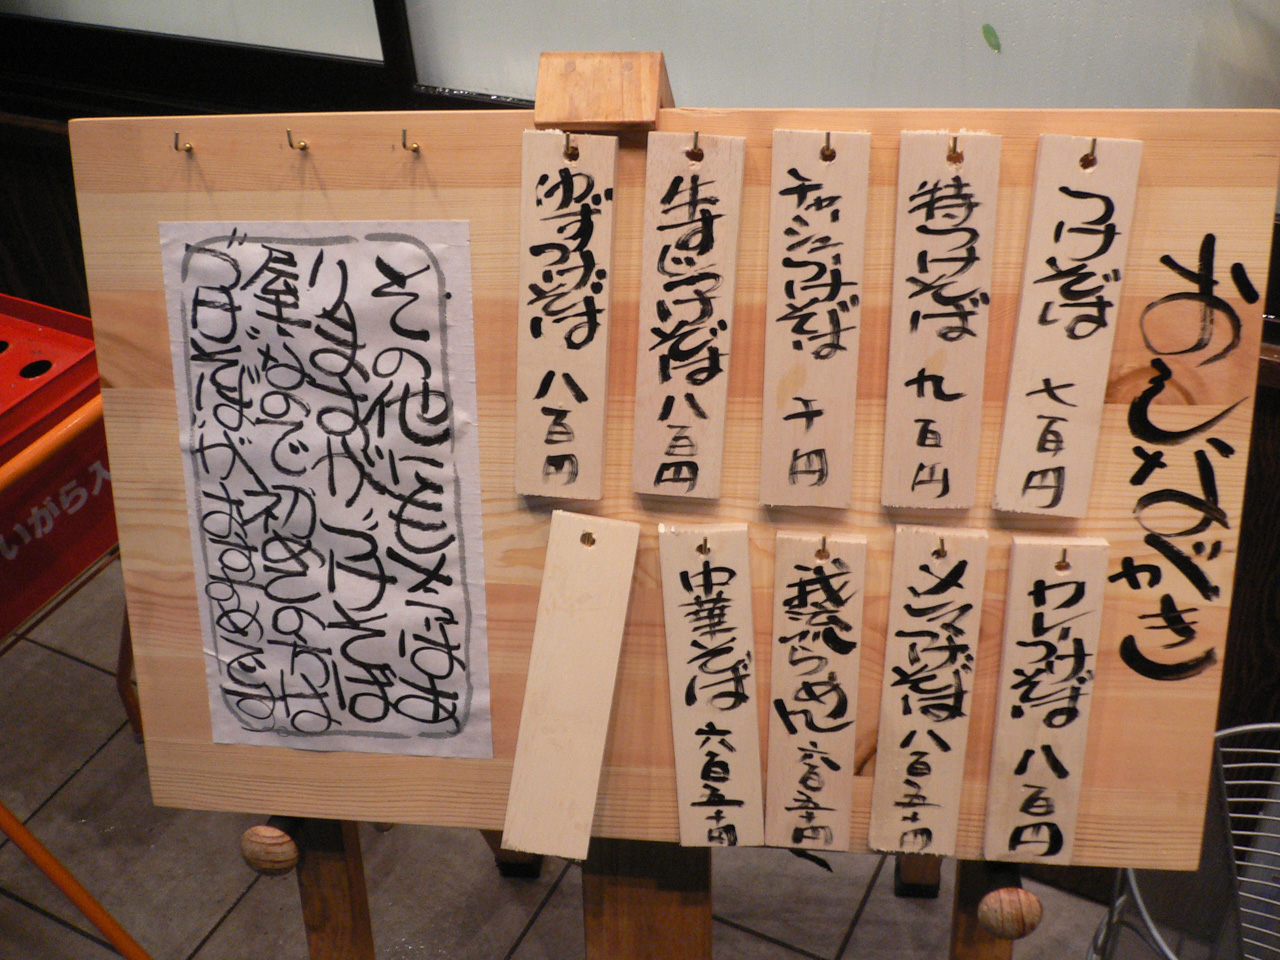 おしながき
つけそば 七百円
特つけそば 九百円
チャーシューつけそば 千円
牛すじつけそば 八百円
ゆずつけそば 八百円
カレーつけそば 八百円
メンマつけそば 八百五十円
我流らーめん 六百五十円
中華そば 六百五十円
その他にもメニューは
ありますが、つけそば
屋なので初めての方は
つけそばがおすすめです
いがら入